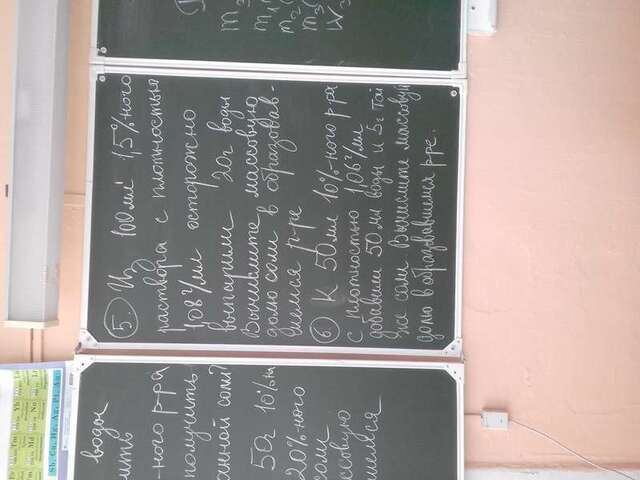 m
m
m
m
w
5. Из 100мл 1,5%ного
раствора с плотностью
1,08 г/мл осторожно
выпарили 20г воды
Вычислите массовую
долю соли в образовав-
шемся р-ре
6) К 50мл 10%-ного р-ра
с плотностью 1,06 г/мл
добавили 50 мл воды и 5г той
же соли Вычислите массовую
долю в образовавшимся р-ре.
воды
-ного р-ра
получить
50г 10%н
20%-ного
соли
ссовую
Sb, Cu, Hg, Ag, Pt, Au